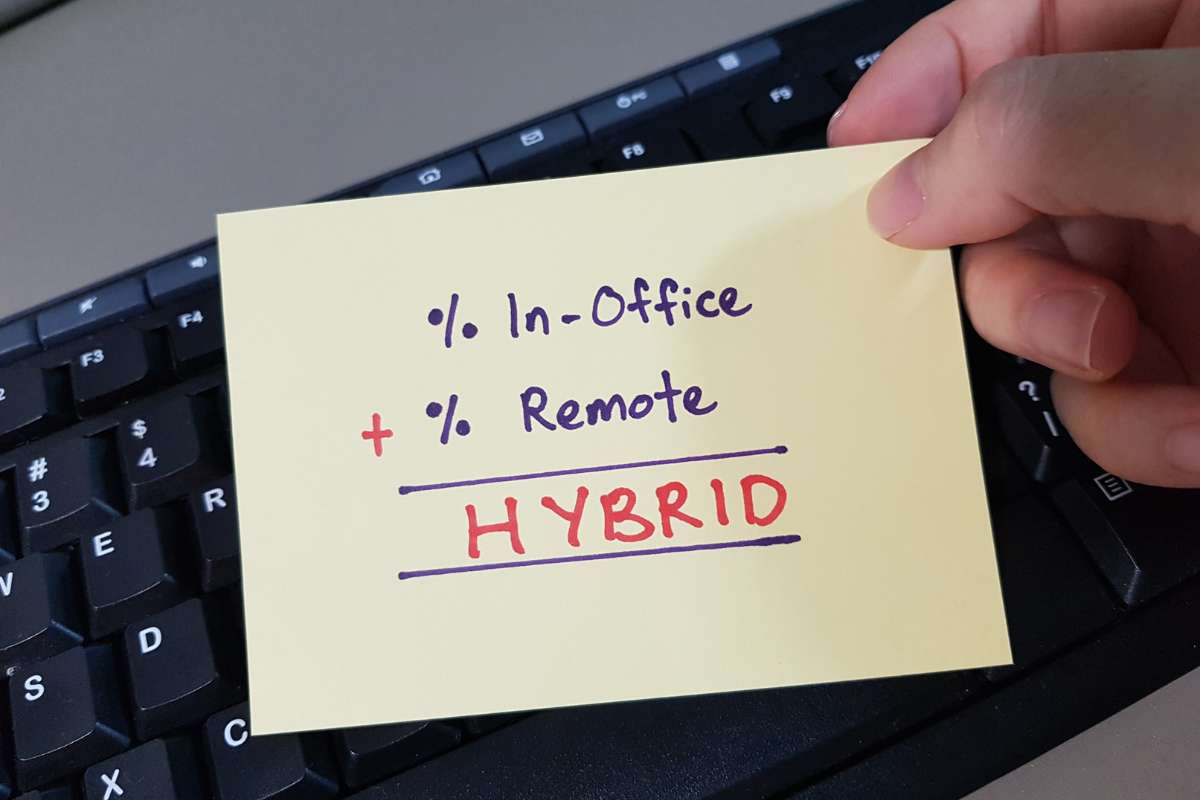 PC
F9
F8
F4
F3
% In-Office
+ % Remote
HYBRID
$
4
#
3
?
R
E
D
S
C
X